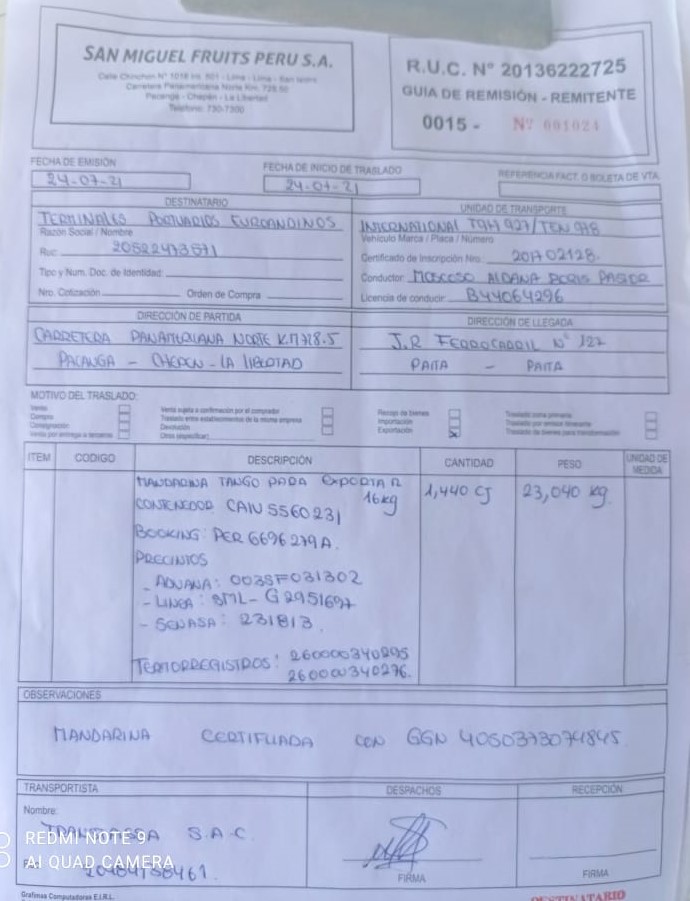 SAN MIGUEL FRUITS PERU S.A.
Calle Chinchon N° 1018 Int. 501 - Lima - Lima - San Isidro
Carretera Panamericana Norte Km. 728.50
Pacanga - Chepén - La Libertad
Teléfono: 730-7300
R.U.C. N° 20136222725
GUIA DE REMISIÓN - REMITENTE
0015 - Nº 001024
FECHA DE EMISIÓN
24-07-21
FECHA DE INICIO DE TRASLADO
24-07-21
REFERENCIA FACT. O BOLETA DE VTA.
DESTINATARIO
TERMINALES PORTUARIOS EUROANDINOS
Razón Social / Nombre
Ruc: 20522473571
Tipo y Num. Doc. de Identidad:
Nro. Cotización: Orden de Compra:
UNIDAD DE TRANSPORTE
INTERNATIONAL T9H 927/TEN 978
Vehículo Marca / Placa / Número
Certificado de Inscripción Nro. 201702128
Conductor: MOSCOSO ALDANA BORIS PASTOR
Licencia de conducir: B44064296
DIRECCIÓN DE PARTIDA
CARRETERA PANAMERICANA NORTE KM 718.5
PACANGA - CHEPEN - LA LIBERTAD
DIRECCIÓN DE LLEGADA
J.R FERROCARRIL N° 127
PAITA - PAITA
MOTIVO DEL TRASLADO:
Venta
Compra
Consignación
Venta por entrega a terceros
Venta sujeta a confirmación por el comprador
Traslado entre establecimientos de la misma empresa
Devolución
Otros (especificar)
Recojo de bienes
Importación
Exportación X
Traslado zona primaria
Traslado por emisor itinerante
Traslado de bienes para transformación
ITEM CODIGO DESCRIPCIÓN CANTIDAD PESO UNIDAD DE MEDIDA
MANDARINA TANGO PARA EXPORTAR 1,440 CJ 23,040 kg
16kg
CONTENEDOR CAIU 5560231
BOOKING: PER 6696279A.
PRECINTOS
- ADUANA: 003SF031302
- LINEA: SML- G2951697
- SENASA: 231813.
TERMORREGISTROS: 260000340295
260000340276.
OBSERVACIONES
MANDARINA CERTIFICADA CON GGN 4050373074845.
TRANSPORTISTA
Nombre:
S.A.C.
20484758461.
DESPACHOS
FIRMA
RECEPCIÓN
FIRMA
REDMI NOTE 9
AI QUAD CAMERA
Grafimas Computadoras E.I.R.L.
DESTINATARIO